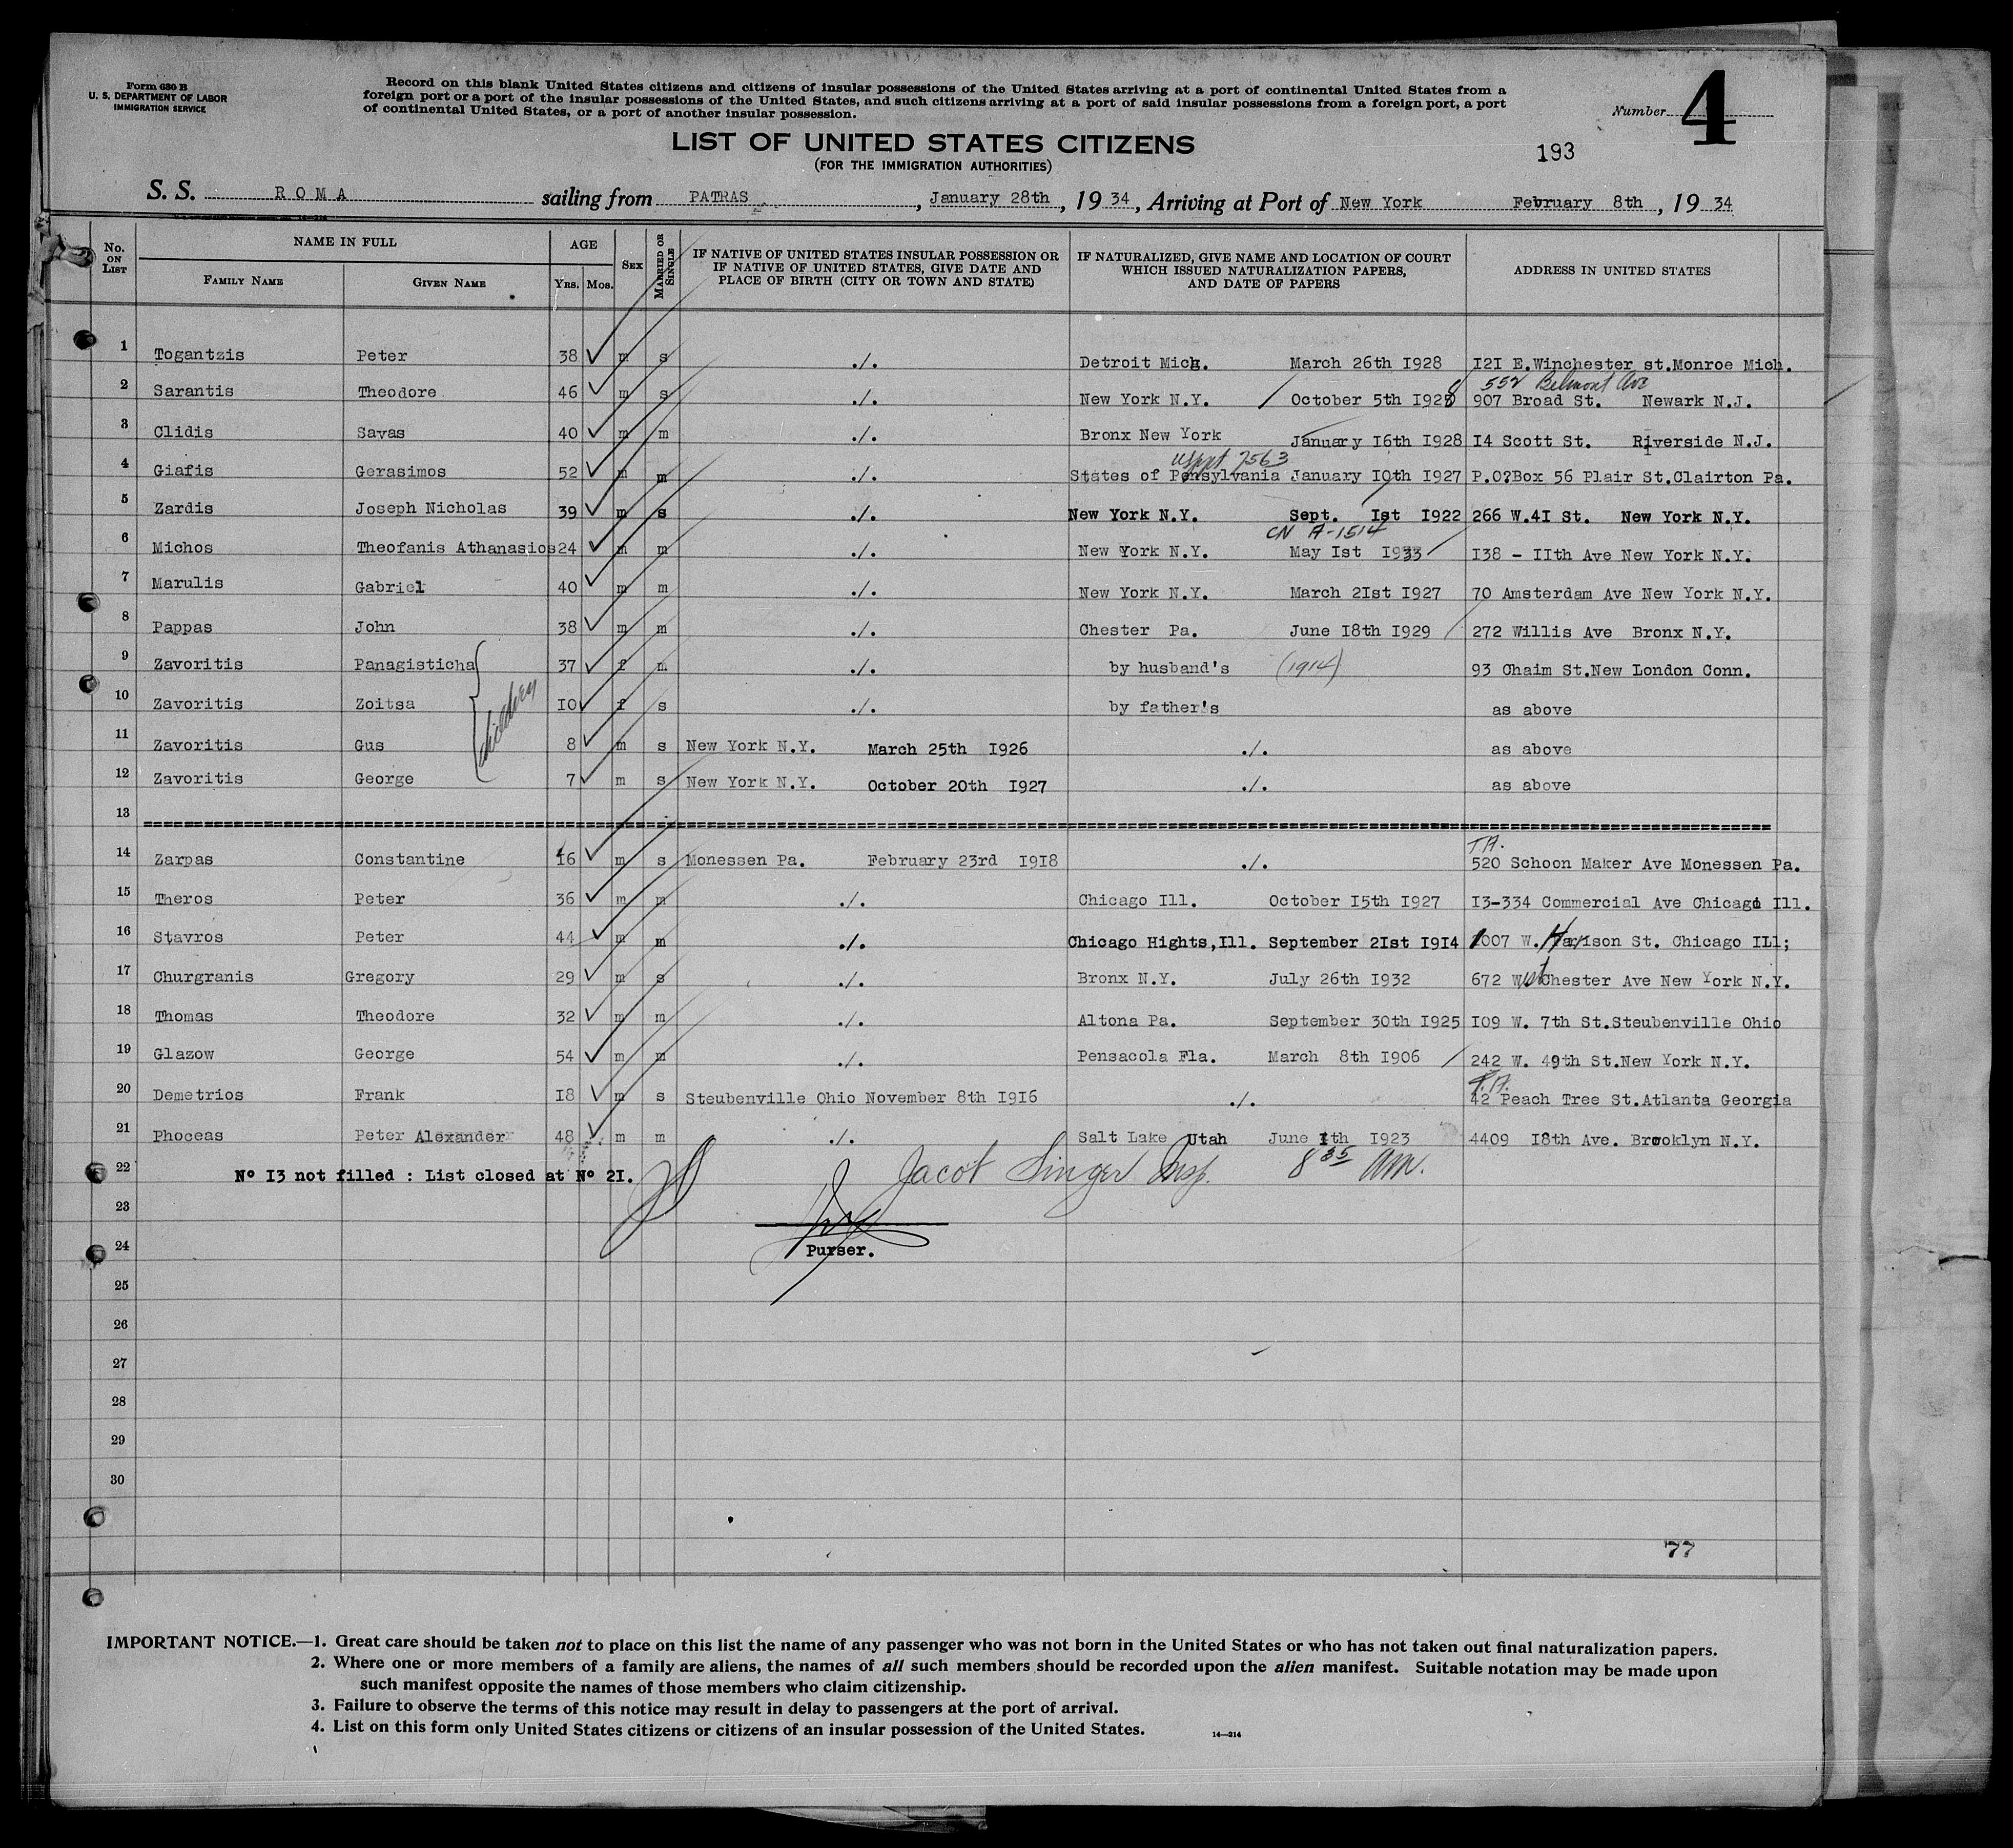 Form 630 B
U. S. DEPARTMENT OF LABOR
IMMIGRATION SERVICE
Record on this blank United States citizens and citizens of insular possessions of the United States arriving at a port of continental United States from a
foreign port or a port of the insular possessions of the United States, and such citizens arriving at a port of said insular possessions from a foreign port, a port
of continental United States, or a port of another insular possession.
Number 4
LIST OF UNITED STATES CITIZENS
(FOR THE IMMIGRATION AUTHORITIES)
193
S. S. ROMA sailing from PATRAS, January 28th, 19 34, Arriving at Port of New York February 8th, 19 34
No. ON LIST NAME IN FULL FAMILY NAME GIVEN NAME AGE YRS. MOS. SEX MARRIED OR SINGLE IF NATIVE OF UNITED STATES INSULAR POSSESSION OR IF NATIVE OF UNITED STATES, GIVE DATE AND PLACE OF BIRTH (CITY OR TOWN AND STATE) IF NATURALIZED, GIVE NAME AND LOCATION OF COURT WHICH ISSUED NATURALIZATION PAPERS, AND DATE OF PAPERS ADDRESS IN UNITED STATES
1 Togantzis Peter 38 m s ./. Detroit Mich. March 26th I928 I2I E.Winchester st.Monroe Mich.
552 Belmont Ave
2 Sarantis Theodore 46 m s ./. New York N.Y. October 5th I928 907 Broad St. Newark N.J.
3 Clidis Savas 40 m m ./. Bronx New York January I6th I928 I4 Scott St. Riverside N.J.
usppt 7563
4 Giafis Gerasimos 52 m m ./. States of Pensylvania January I0th I927 P.O?Box 56 Plair St.Clairton Pa.
5 Zardis Joseph Nicholas 39 m s ./. New York N.Y. Sept. Ist I922 266 W.4I St. New York N.Y.
CN A-1514
6 Michos Theofanis Athanasios 24 m m ./. New York N.Y. May Ist I933 I38 - IIth Ave New York N.Y.
7 Marulis Gabriel 40 m m ./. New York N.Y. March 2Ist I927 70 Amsterdam Ave New York N.Y.
8 Pappas John 38 m m ./. Chester Pa. June I8th I929 272 Willis Ave Bronx N.Y.
9 Zavoritis Panagisticha 37 f m ./. by husband's (1914) 93 Chaim St.New London Conn.
children
10 Zavoritis Zoitsa I0 f s ./. by father's as above
11 Zavoritis Gus 8 m s New York N.Y. March 25th I926 ./. as above
12 Zavoritis George 7 m s New York N.Y. October 20th I927 ./. as above
13
T.A.
14 Zarpas Constantine I6 m s Monessen Pa. February 23rd I9I8 ./. 520 Schoon Maker Ave Monessen Pa.
15 Theros Peter 36 m m ./. Chicago Ill. October I5th I927 I3-334 Commercial Ave Chicago Ill.
16 Stavros Peter 44 m m ./. Chicago Hights,Ill. September 2Ist I9I4 1007 W. Harrison St. Chicago ILl;
17 Churgranis Gregory 29 m s ./. Bronx N.Y. July 26th I932 672 WestChester Ave New York N.Y.
18 Thomas Theodore 32 m m ./. Altona Pa. September 30th I925 I09 W. 7th St.Steubenville Ohio
19 Glazow George 54 m m ./. Pensacola Fla. March 8th I906 242 W. 49th St.New York N.Y.
T.A.
20 Demetrios Frank I8 m s Steubenville Ohio November 8th I9I6 ./. 42 Peach Tree St.Atlanta Georgia
21 Phoceas Peter Alexander 48 m m ./. Salt Lake Utah June 1th I923 4409 I8th Ave. Brooklyn N.Y.
22 Nº I3 not filled : List closed at Nº 2I. Jacob Singer Insp. 8 35 AM.
23
24 Purser.
25
26
27
28
29
30
77
IMPORTANT NOTICE.—1. Great care should be taken not to place on this list the name of any passenger who was not born in the United States or who has not taken out final naturalization papers.
2. Where one or more members of a family are aliens, the names of all such members should be recorded upon the alien manifest. Suitable notation may be made upon
such manifest opposite the names of those members who claim citizenship.
3. Failure to observe the terms of this notice may result in delay to passengers at the port of arrival.
4. List on this form only United States citizens or citizens of an insular possession of the United States.
14—314